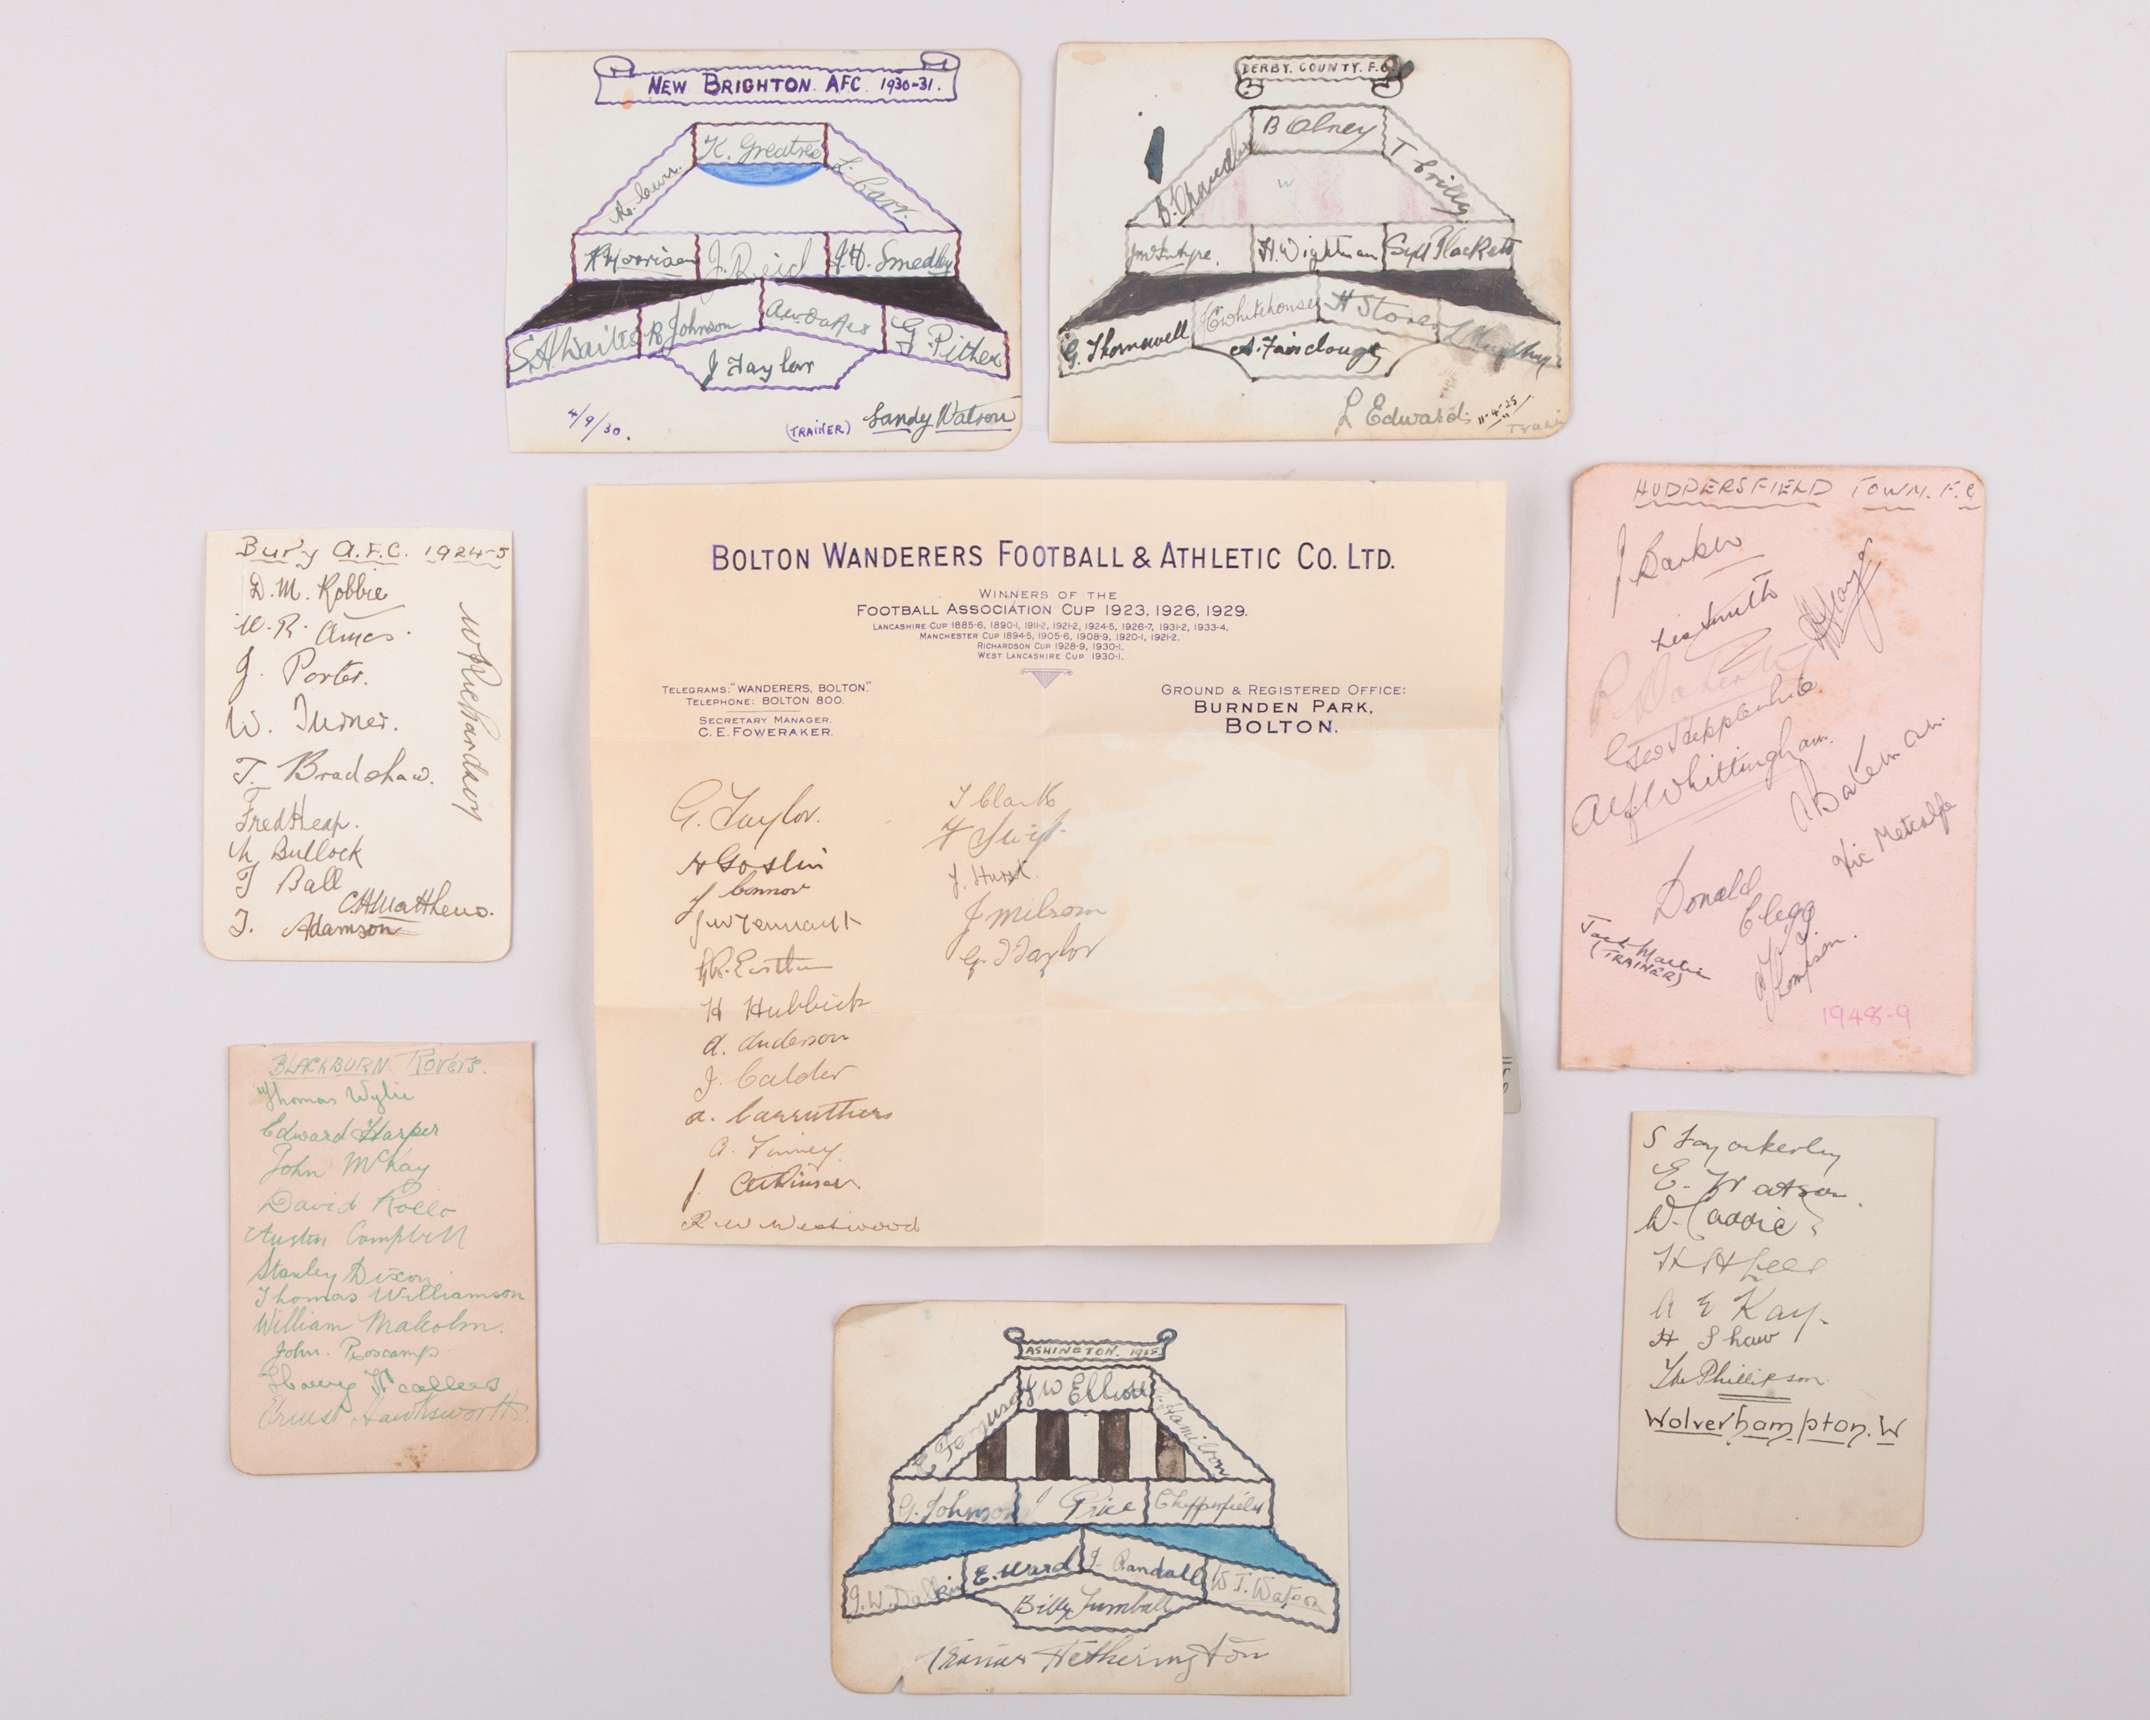 NEW BRIGHTON. AFC. 1930-31.
K. Greatrex
L. Carr.
R Morrison
J. Reid
J. H. Smedley
S A Waite
R Johnson
G. Pither
J Taylor
4/9/30.
(TRAINER) Sandy Watson
DERBY. COUNTY. F.C.
B Olney
B. Chandler
T Crilly
J McIntyre.
H. Wightman
Syd Plackett
G. Thornewell
J Whitehouse
H Storer
L Murphy
A. Fairclough
L Edwards
11-4-25
Bury A.F.C. 1924-5
D. M. Robbie
W. R. Ames.
J. Porter.
W. Turner.
T. Bradshaw.
Fred Heap.
N Bullock
T Ball
C A Matthews.
T. Adamson
W Richardson
BOLTON WANDERERS FOOTBALL & ATHLETIC CO. LTD.
WINNERS OF THE
FOOTBALL ASSOCIATION CUP 1923, 1926, 1929.
LANCASHIRE CUP 1885-6, 1890-1, 1911-2, 1921-2, 1924-5, 1926-7, 1931-2, 1933-4.
MANCHESTER CUP 1894-5, 1905-6, 1908-9, 1920-1, 1921-2.
RICHARDSON CUP 1928-9, 1930-1.
WEST LANCASHIRE CUP 1930-1.
TELEGRAMS: "WANDERERS, BOLTON."
TELEPHONE: BOLTON 800.
SECRETARY MANAGER.
C. E. FOWERAKER.
GROUND & REGISTERED OFFICE:
BURNDEN PARK,
BOLTON.
G. Taylor.
H Goslin
J Connor
J W Tennant
G R. Eastham
H Hubbick
A. Anderson
J. Calder
A. Carruthers
A. Finney.
J. Atkinson.
R. W Westwood
F Swift
J. Hurst.
J Milsom
G. T Taylor
HUDDERSFIELD TOWN. F.C
J. Barker
Les Smith
Geo Hepplewhite.
Alf Whittingham.
A Bateman.
Vic Metcalfe
Donald Clegg
Jack Martin
(TRAINER)
Thompson.
1948-9
BLACKBURN ROVERS.
Thomas Wylie
Edward Harper
John McKay
David Rollo
Austin Campbell
Stanley Dixon.
Thomas Williamson
William Malcolm.
John. Roscamp.
Ernest Hawksworth.
E. Watson.
W. Caddick
H H Lees
A E Kay.
H Shaw
Tho Phillipson.
Wolverhampton. W
ASHINGTON. 1925
J W Elliott
Hamilton
G. Johnson
J Price
Chipperfield
J. W. Dalkin
E. Ward
J. Randall
W T. Watson
Billy Turnball
Trainer Hetherington